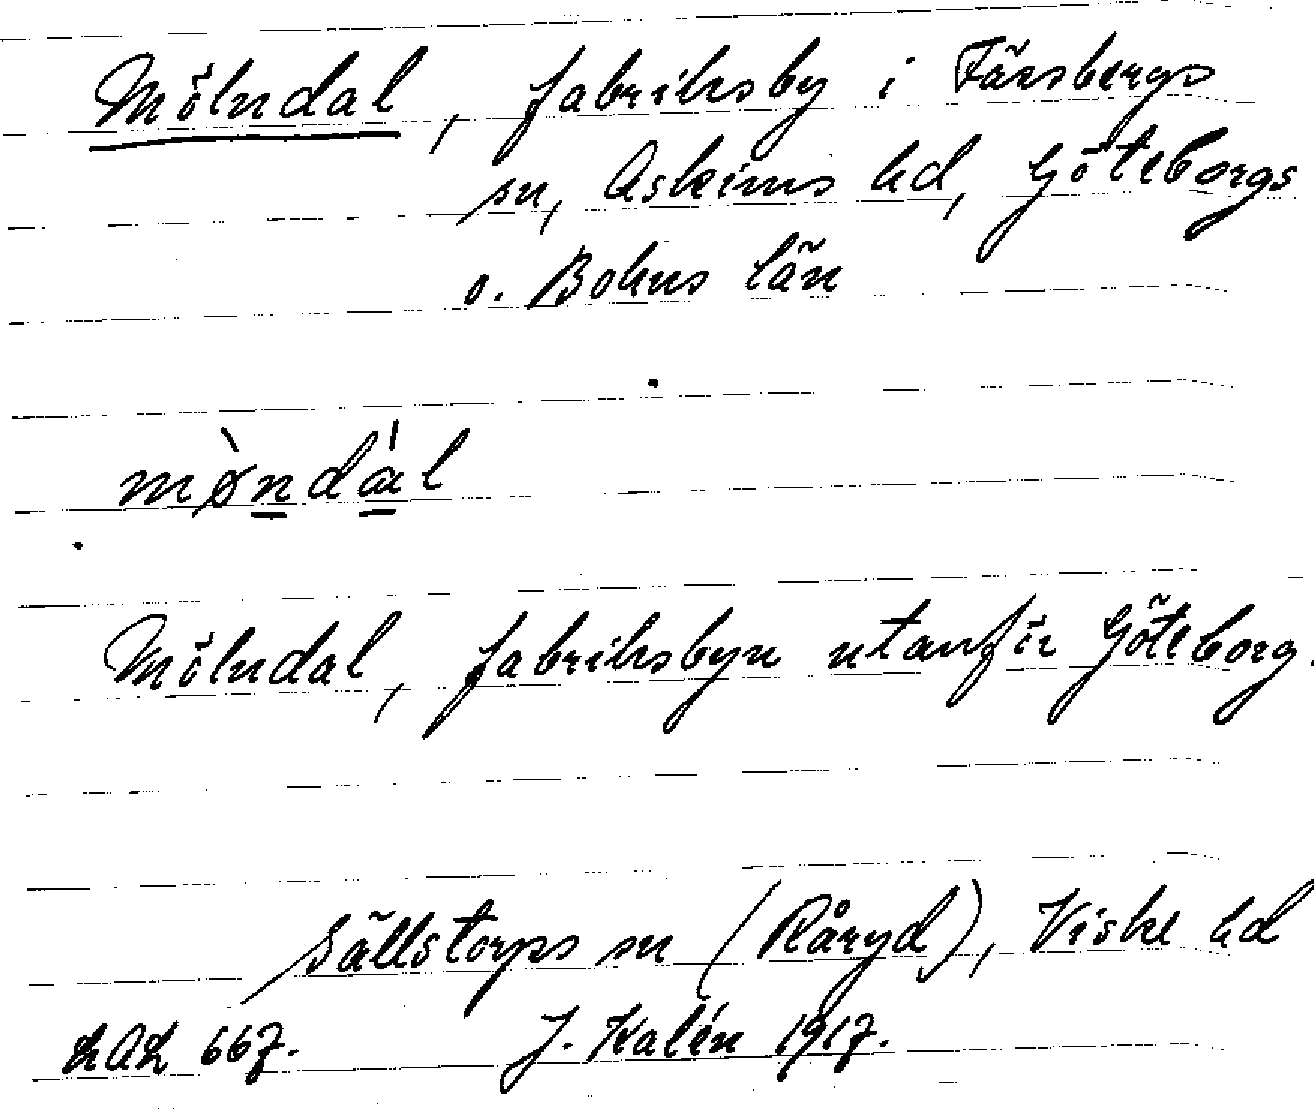 Mölndal, fabriksby i Färsbergs
sn, Askims hd, Göteborgs
o. Bohus län
mø̀ndál
Mölndal, fabriksbyn utanför Göteborg.
Sällstorps sn (Råryd), Viske hd
LAL 667. J. Kalén 1917.